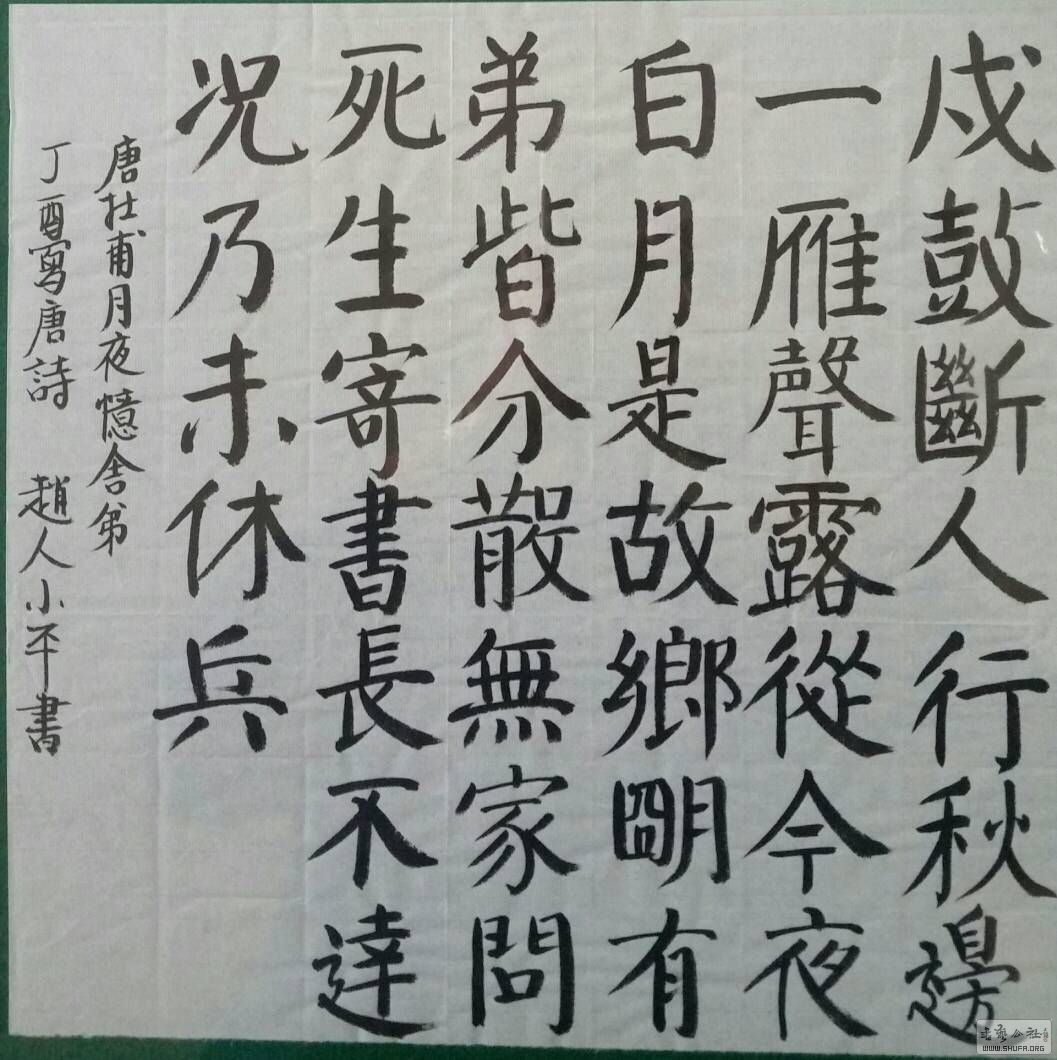 戍鼓斷人行秋邊
一雁聲露從今夜
白月是故鄉朙有
弟皆分散無家問
死生寄書長不達
況乃未休兵
唐杜甫月夜憶舍弟
丁酉寫唐詩 趙人小平書
书艺公社
WWW.SHUFA.ORG